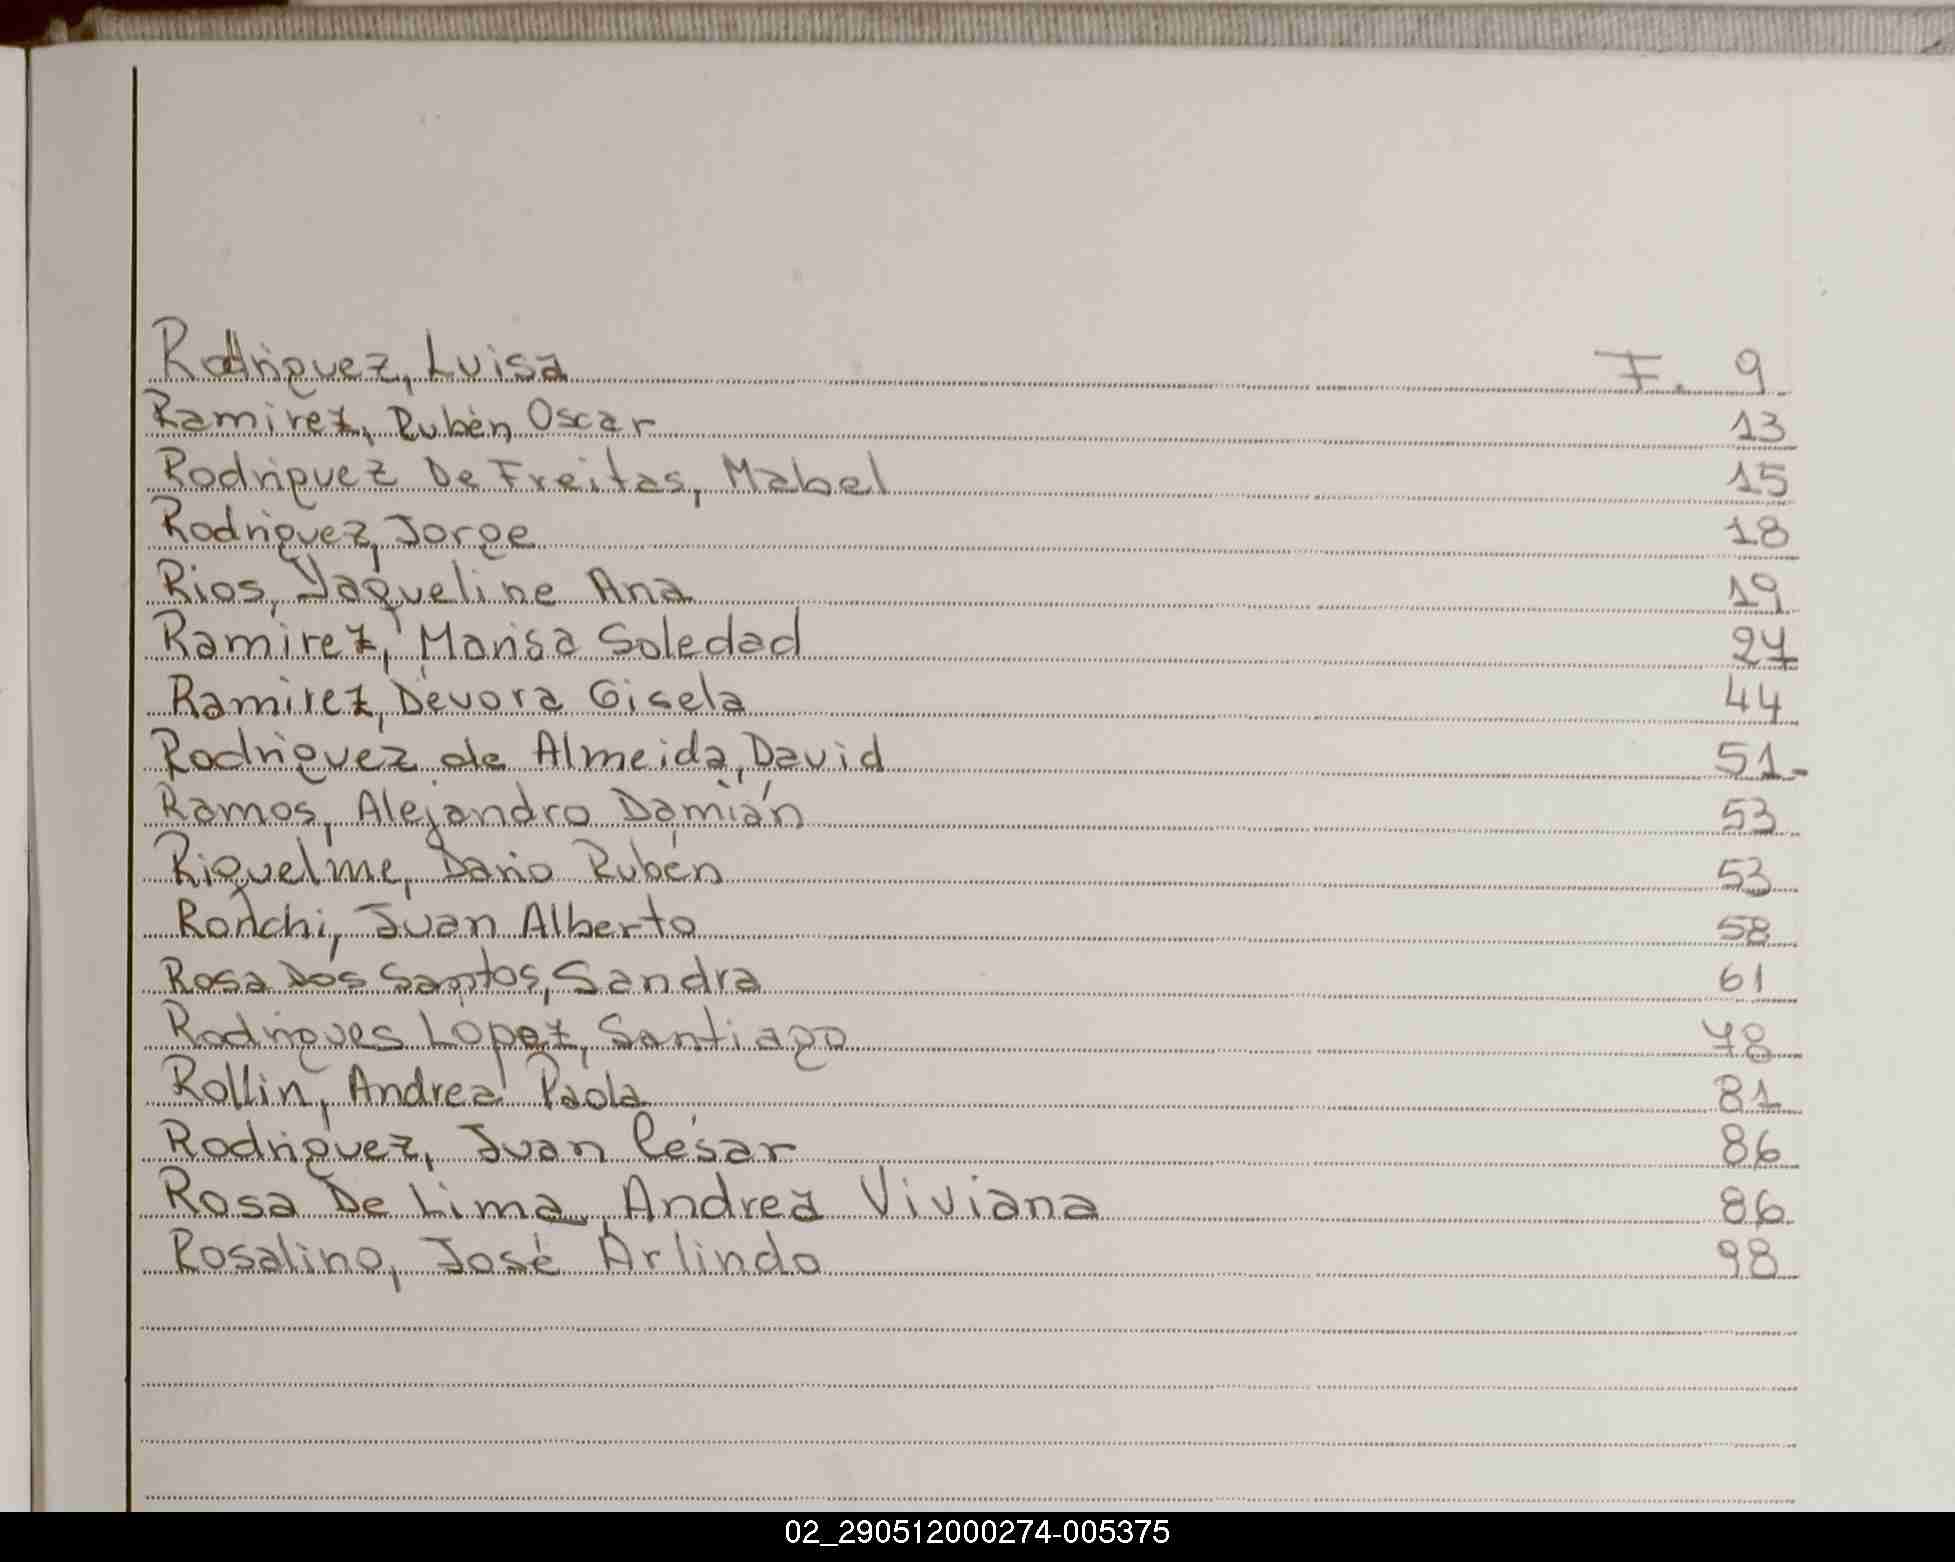 Rodriguez, Luisa F. 9
Ramirez, Rubén Oscar 13
Rodriguez De Freitas, Mabel 15
Rodriguez, Jorge 18
Rios, Yaqueline Ana 19
Ramirez, Marisa Soledad 27
Ramirez, Dévora Gisela 44
Rodriguez de Almeida, David 51-
Ramos, Alejandro Damián 53
Riquelme, Dario Rubén 53
Ronchi, Juan Alberto 58
Rosa Dos Santos, Sandra 61
Rodrigues Lopez, Santiago 78
Rollin, Andrea Paola 81
Rodriguez, Juan César 86
Rosa De Lima, Andrea Viviana 86
Rosalino, José Arlindo 98
02_290512000274-005375